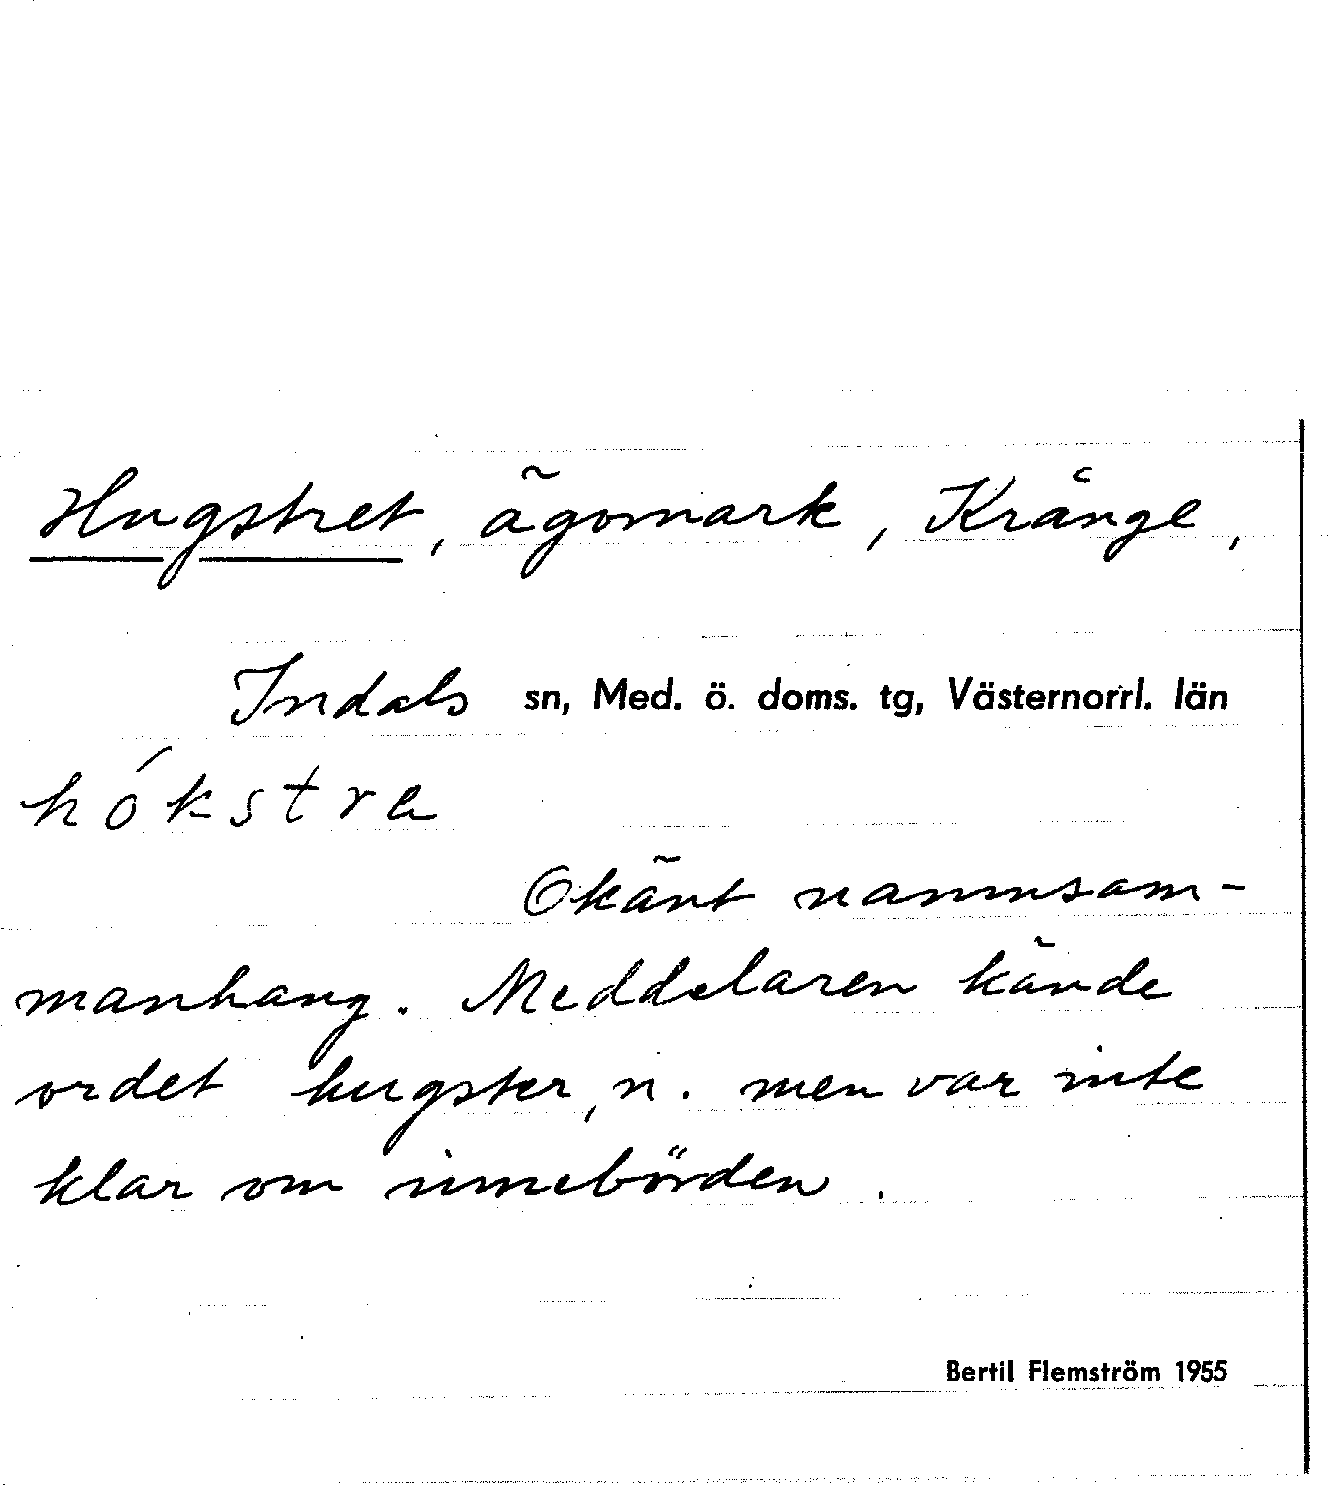 Hugstret, ägomark, Krånge,
Indals sn, Med. ö. doms. tg, Västernorrl. län
hókstra
Okänt namnsam-
manhang. Meddelaren kände
ordet hugster, n. men var inte
klar om innebörden.
Bertil Flemström 1955